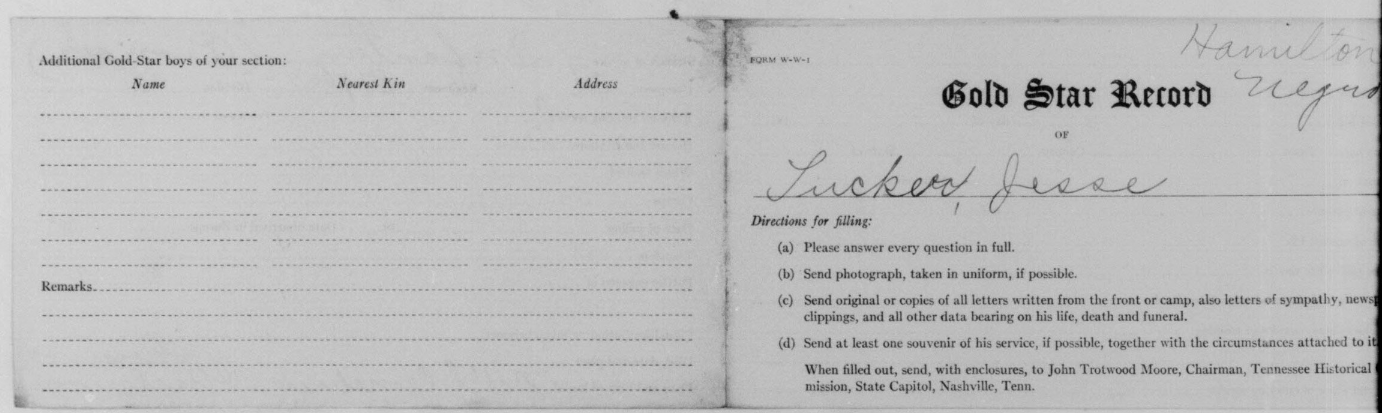 Additional Gold-Star boys of your section:
Name Nearest Kin Address
Remarks
FORM W-W-1
Hamilton
Negro
Gold Star Record
OF
Tucker, Jesse
Directions for filling:
(a) Please answer every question in full.
(b) Send photograph, taken in uniform, if possible.
(c) Send original or copies of all letters written from the front or camp, also letters of sympathy, newsp
clippings, and all other data bearing on his life, death and funeral.
(d) Send at least one souvenir of his service, if possible, together with the circumstances attached to it
When filled out, send, with enclosures, to John Trotwood Moore, Chairman, Tennessee Historical
mission, State Capitol, Nashville, Tenn.